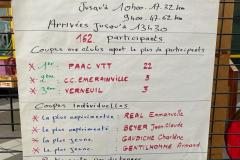 Jusqu'à 10h00 - 17.32 km
9h00 - 47.62 km
Arrivées jusqu'à 13h30
162 participants
Coupes aux clubs ayant le plus de participants
* 1er : PAAC VTT 22
* 2ème : C.C. EMERAINVILLE 5
* 3ème : VERNEUIL 5
Coupes Individuelles
* La plus expérimentée : REAL Emmanuelle
* Le plus expérimenté : BEYER Jean Claude
* La plus jeune : GAUDICHE Charlène
* Le plus jeune : GENTILHOMME Armand